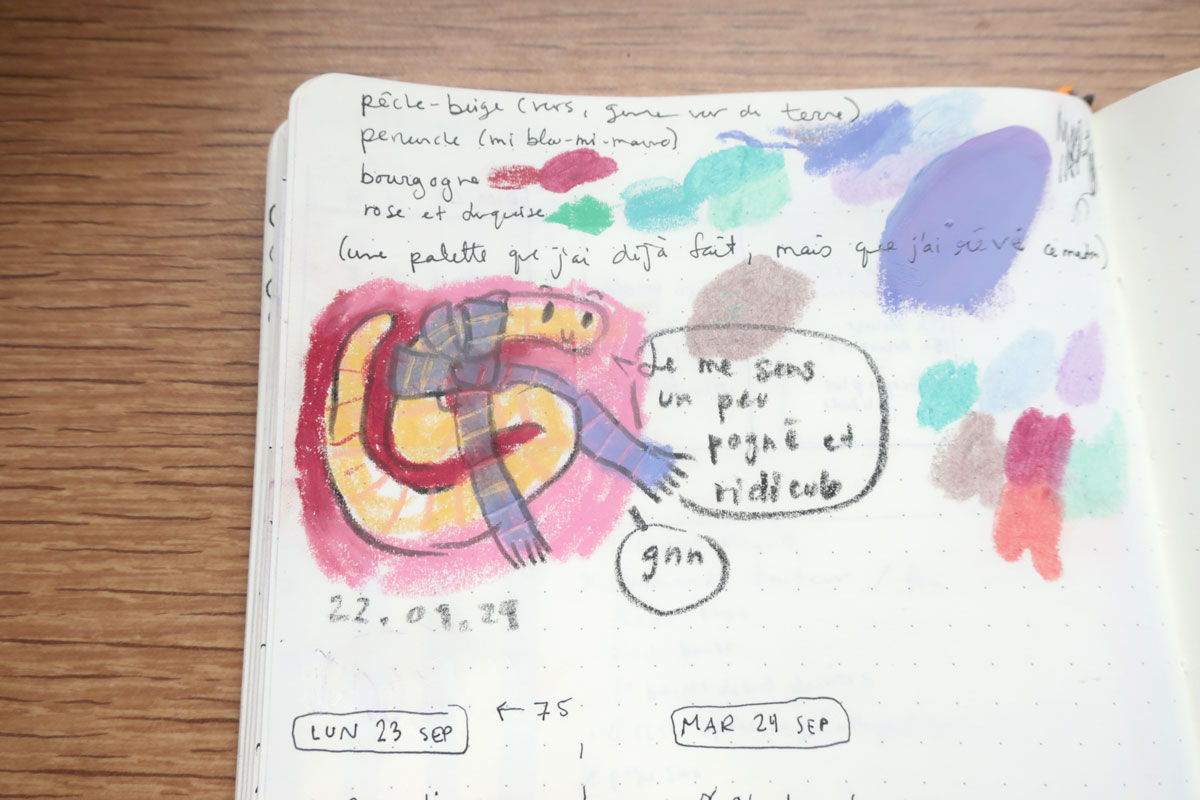 pêche-beige (vers, genre ver de terre)
pervenche (mi bleu-mi-mauve)
bourgogne
rose et turquoise
(une palette que j'ai déjà fait, mais que j'ai rêvé ce matin)
Je me sens
un peu
pogné et
ridicule
gnn
22.09.24
LUN 23 SEP
← 75
MAR 24 SEP